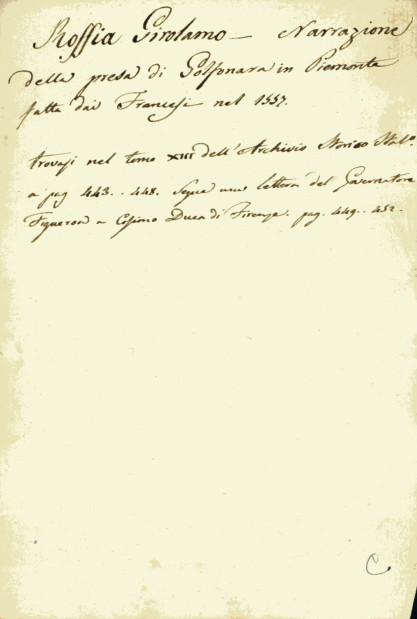 Roffia Girolamo — Narrazione
della presa di Golfonara in Piemonte
fatta dai Francesi nel 1557.
trovasi nel tomo XIII dell'Archivio Storico Ital.º
a pag 443. . 448. Segue una lettera del Governatore
Figueroa a Cosimo Duca di Firenze. pag. 449. . 452.
C